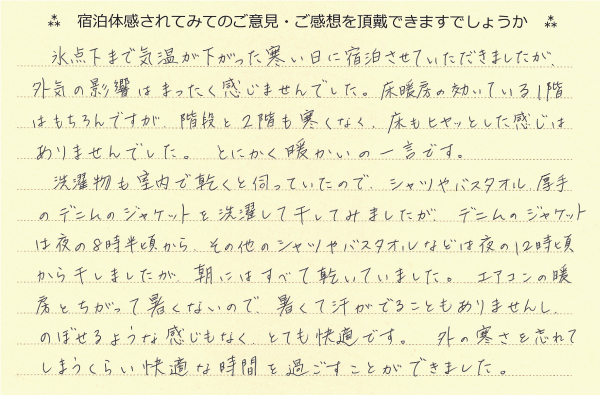 ⁂ 宿泊体感されてみてのご意見・ご感想を頂戴できますでしょうか ⁂
氷点下まで気温が下がった寒い日に宿泊させていただきましたが、
外気の影響はまったく感じませんでした。床暖房の効いている1階
はもちろんですが、階段と2階も寒くなく、床もヒヤッとした感じは
ありませんでした。 とにかく暖かいの一言です。
洗濯物も室内で乾くと伺っていたので、シャツやバスタオル、厚手
のデニムのジャケットを洗濯して干してみましたが、デニムのジャケット
は夜の8時半頃から、その他のシャツやバスタオルなどは夜の12時頃
から干しましたが、朝にはすべて乾いていました。 エアコンの暖
房とちがって暑くないので、暑くて汗がでることもありませんし、
のぼせるような感じもなく、とても快適です。 外の寒さを忘れて
しまうくらい快適な時間を過ごすことができました。